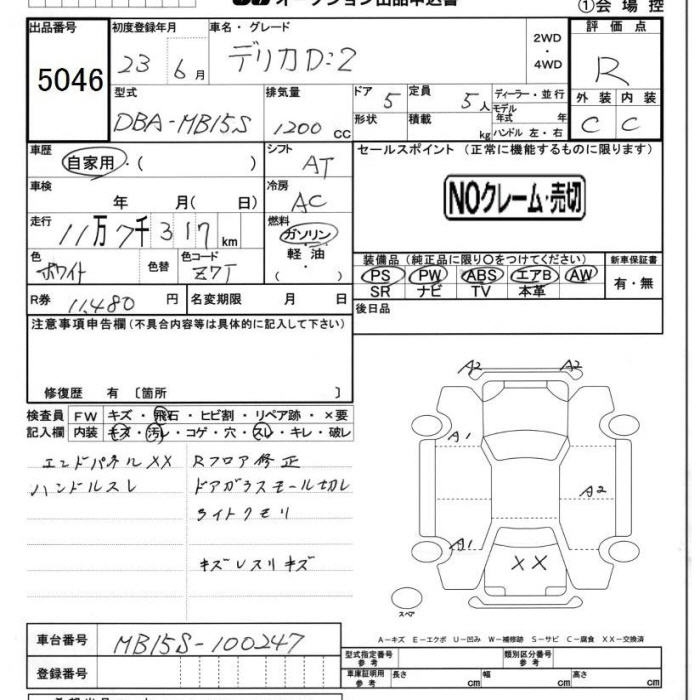 オークション出品申込書
①会場控
出品番号 初度登録年月 車名・グレード 2WD・4WD 評価点
5046 23 6月 デリカD:2 R
型式 排気量 ドア 5 定員 5人 ディーラー・並行 外装 内装
モデル年式 年
DBA-MB15S 1200cc 形状 積載 kg ハンドル 左・右 C C
車歴 自家用・( ) シフト AT セールスポイント (正常に機能するものに限ります)
車検 年 月( 日) 冷房 AC NOクレーム・売切
走行 11万7千317km 燃料 ガソリン・軽油・
色 ホワイト 色替 色コード Z7T
装備品 (純正品に限り○をつけてください) 新車保証書
PS PW ABS エアB AW 有・無
SR ナビ TV 本革
R券 11,480円 名変期限 月 日 後日品
注意事項申告欄(不具合内容等は具体的に記入して下さい)
修復歴 有〔箇所 〕
検査員 FW キズ・飛石・ヒビ割・リペア跡・×要
記入欄 内装 キズ・汚レ・コゲ・穴・スレ・キレ・破レ
エンドパネルXX Rフロア修正
ハンドルスレ ドアガラスモール切レ
ライトクモリ
キズレスリキズ
A2 A2
A1
A2
A1
XX
スペア
A-キズ E-エクボ U-凹み W-補修跡 S-サビ C-腐食 XX-交換済
車台番号 MB15S-100247
型式指定番号 参考 類別区分番号 参考
登録番号 車庫証明用 参考 長さ cm 幅 cm 高さ cm